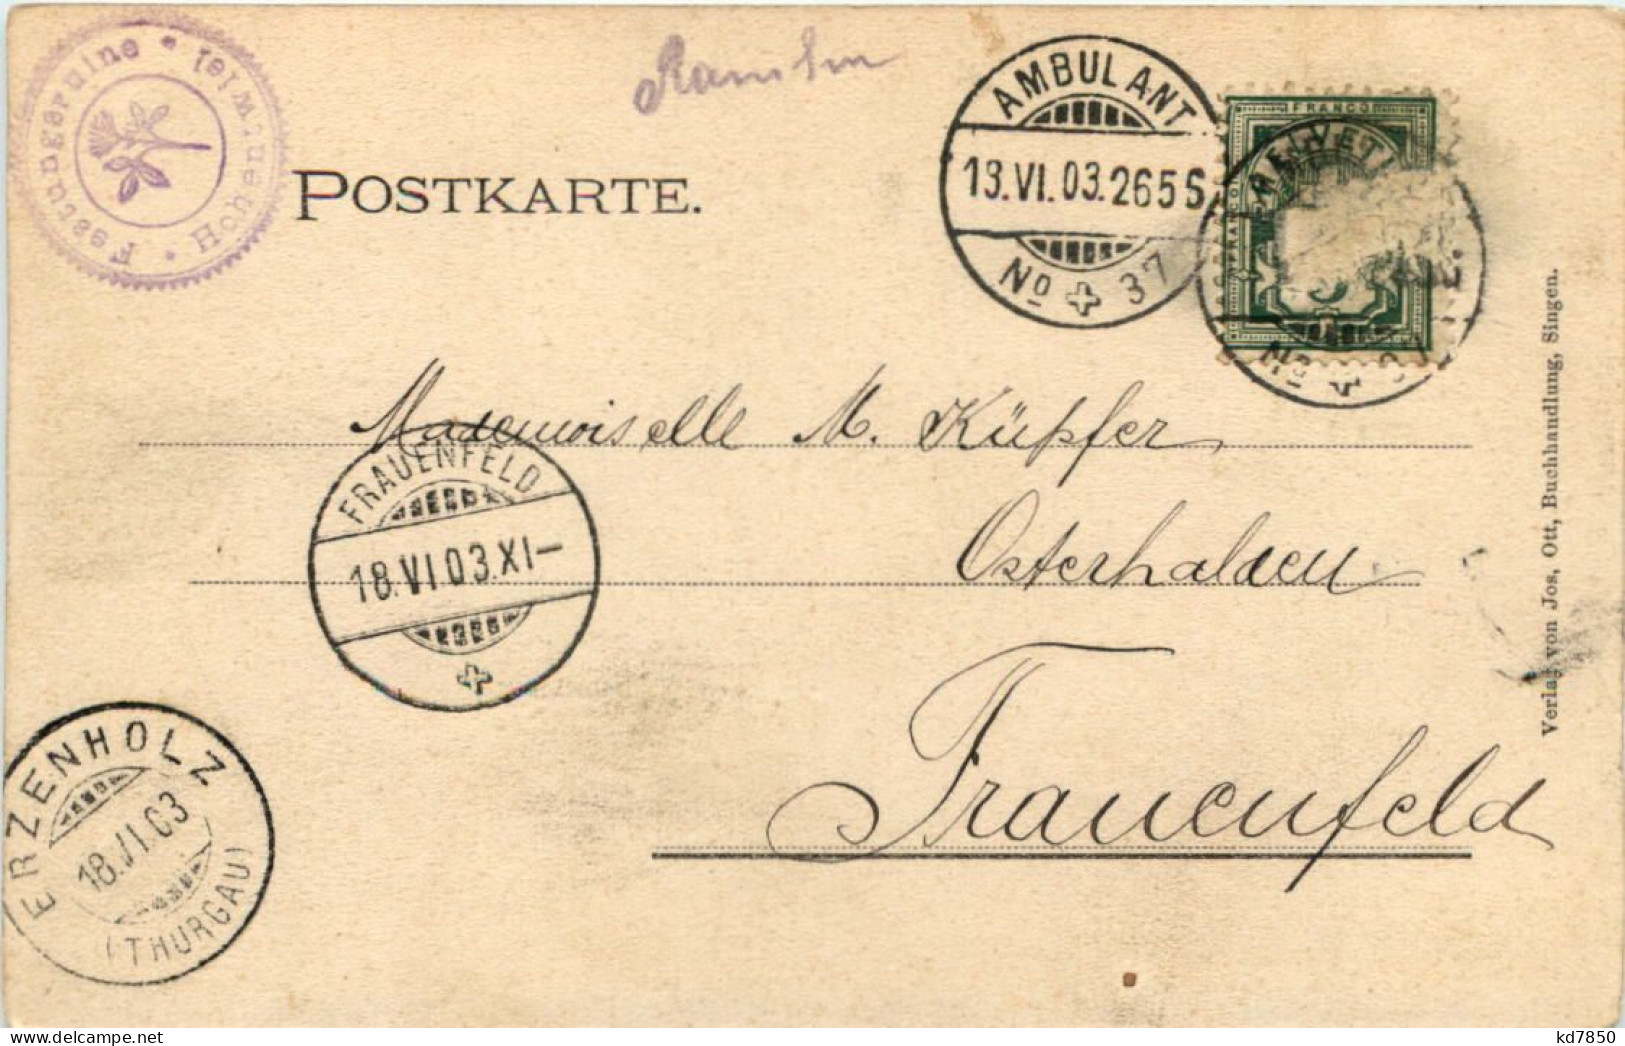 Festungsruine * Hohentwiel *
AMBULANT
13.VI.03.265S
No 37
FRANCO
HELVETIA
No
POSTKARTE.
Mademoiselle M. Küpfer
Osterhalden
Frauenfeld
FRAUENFELD
18.VI.03.XI-
ERZENHOLZ
18.VI.03
(THURGAU)
Verlag von Jos. Ott, Buchhandlung, Singen.
www.delcampe.net
kd7850